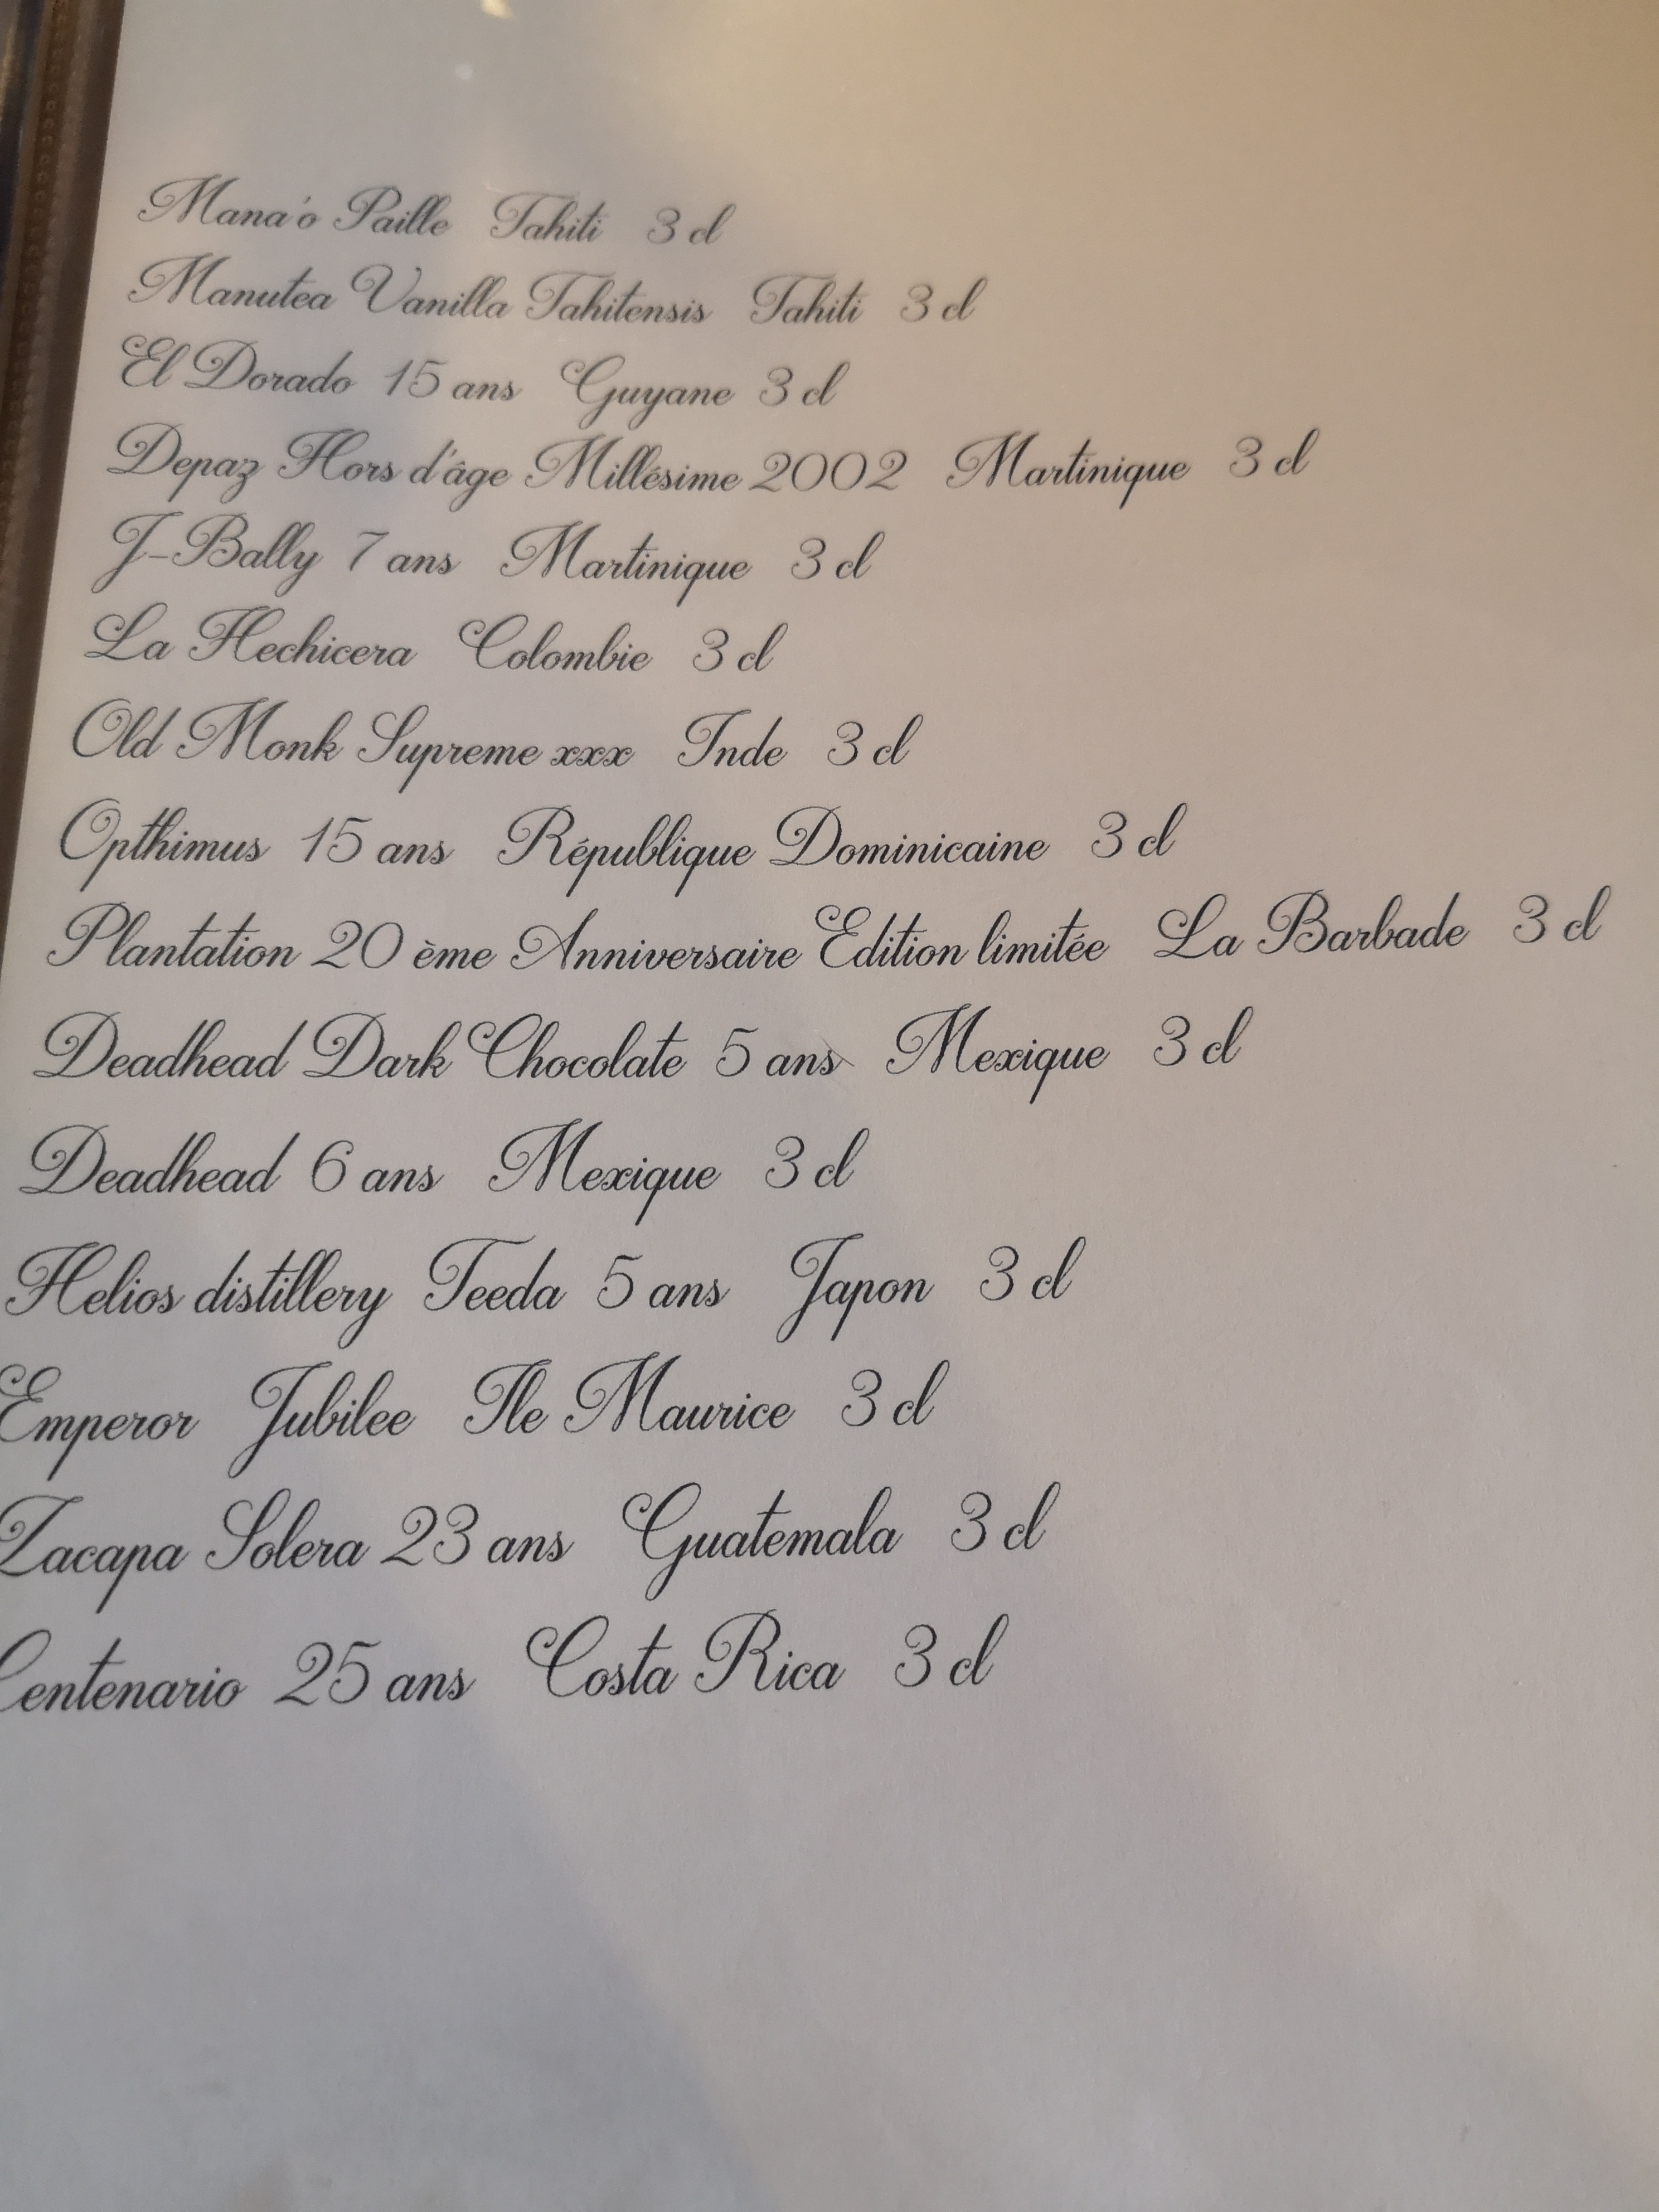 Mana'o Paille Tahiti 3 cl
Manutea Vanilla Tahitensis Tahiti 3 cl
El Dorado 15 ans Guyane 3 cl
Depaz Hors d'âge Millésime 2002 Martinique 3 cl
J-Bally 7 ans Martinique 3 cl
La Hechicera Colombie 3 cl
Old Monk Supreme xxx Inde 3 cl
Opthimus 15 ans République Dominicaine 3 cl
Plantation 20 ème Anniversaire Edition limitée La Barbade 3 cl
Deadhead Dark Chocolate 5 ans Mexique 3 cl
Deadhead 6 ans Mexique 3 cl
Helios distillery Teeda 5 ans Japon 3 cl
Emperor Jubilee Ile Maurice 3 cl
Zacapa Solera 23 ans Guatemala 3 cl
Centenario 25 ans Costa Rica 3 cl